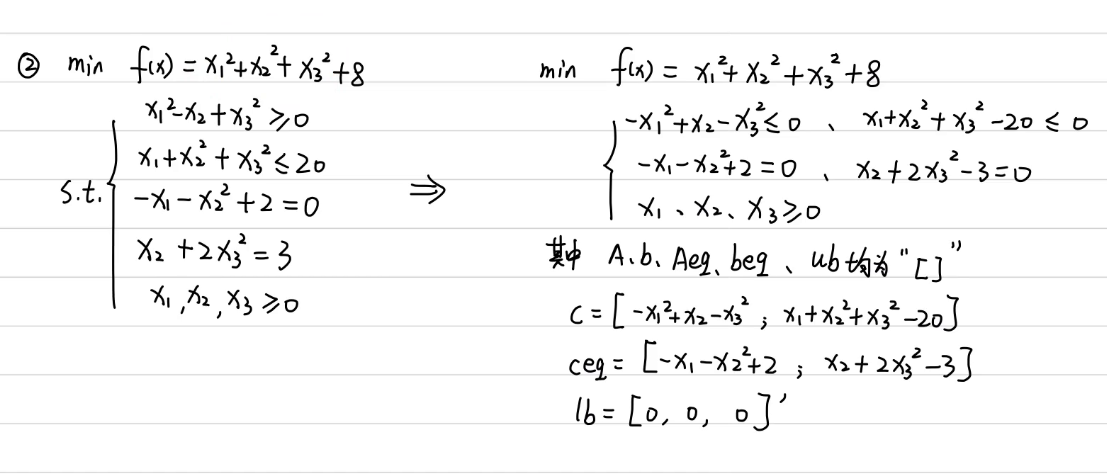 ② min f(x) = x₁²+x₂²+x₃²+8
x₁²-x₂+x₃² ≥ 0
x₁+x₂²+x₃² ≤ 20
s.t. { -x₁-x₂²+2=0
x₂+2x₃²=3
x₁,x₂,x₃ ≥ 0
⇒
min f(x) = x₁²+x₂²+x₃²+8
{ -x₁²+x₂-x₃² ≤ 0 、 x₁+x₂²+x₃²-20 ≤ 0
-x₁-x₂²+2=0 、 x₂+2x₃²-3=0
x₁、x₂、x₃ ≥ 0
其中 A.b.Aeq、beq、ub均为“[]”
c=[-x₁²+x₂-x₃² ; x₁+x₂²+x₃²-20]
ceq=[-x₁-x₂²+2 ; x₂+2x₃²-3]
lb=[0, 0, 0]'